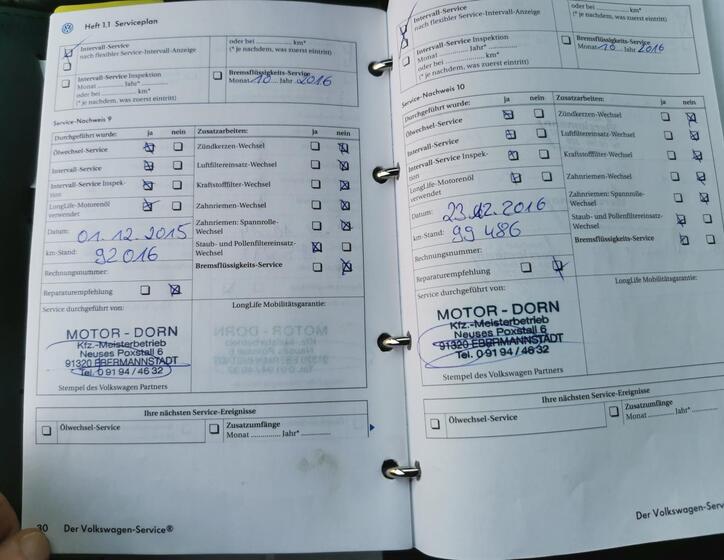 Heft 1.1 Serviceplan
Intervall-Service
nach flexibler Service-Intervall-Anzeige
Intervall-Service Inspektion
Monat ............ Jahr* ............
oder bei ............ km*
(* je nachdem, was zuerst eintritt)
oder bei ............ km*
(* je nachdem, was zuerst eintritt)
Bremsflüssigkeits-Service
Monat 10 Jahr 2016
Service-Nachweis 9
Durchgeführt wurde: ja nein
Ölwechsel-Service
Intervall-Service
Intervall-Service Inspek-
tion
LongLife-Motorenöl
verwendet
Datum: 01.12.2015
km-Stand: 92016
Rechnungsnummer:
Reparaturempfehlung
Zusatzarbeiten: ja nein
Zündkerzen-Wechsel
Luftfiltereinsatz-Wechsel
Kraftstofffilter-Wechsel
Zahnriemen-Wechsel
Zahnriemen: Spannrolle-
Wechsel
Staub- und Pollenfiltereinsatz-
Wechsel
Bremsflüssigkeits-Service
Service durchgeführt von:
MOTOR - DORN
Kfz.-Meisterbetrieb
Neuses Poxstall 6
91320 EBERMANNSTADT
Tel. 0 91 94 / 46 32
Stempel des Volkswagen Partners
LongLife Mobilitätsgarantie:
Ihre nächsten Service-Ereignisse
Ölwechsel-Service
Zusatzumfänge
Monat ............ Jahr* ............
30 Der Volkswagen-Service®
Intervall-Service
nach flexibler Service-Intervall-Anzeige
Intervall-Service Inspektion
Monat ............ Jahr* ............
oder bei ............ km*
(* je nachdem, was zuerst eintritt)
oder bei ............ km*
(* je nachdem, was zuerst eintritt)
Bremsflüssigkeits-Service
Monat 10 Jahr 2016
Service-Nachweis 10
Durchgeführt wurde: ja nein
Ölwechsel-Service
Intervall-Service
Intervall-Service Inspek-
tion
LongLife-Motorenöl
verwendet
Datum: 23.12.2016
km-Stand: 99 486
Rechnungsnummer:
Reparaturempfehlung
Zusatzarbeiten: ja nein
Zündkerzen-Wechsel
Luftfiltereinsatz-Wechsel
Kraftstofffilter-Wechsel
Zahnriemen-Wechsel
Zahnriemen: Spannrolle-
Wechsel
Staub- und Pollenfiltereinsatz-
Wechsel
Bremsflüssigkeits-Service
Service durchgeführt von:
MOTOR - DORN
Kfz.-Meisterbetrieb
Neuses Poxstall 6
91320 EBERMANNSTADT
Tel. 0 91 94 / 46 32
Stempel des Volkswagen Partners
LongLife Mobilitätsgarantie:
Ihre nächsten Service-Ereignisse
Ölwechsel-Service
Zusatzumfänge
Monat ............ Jahr* ............
Der Volkswagen-Serv